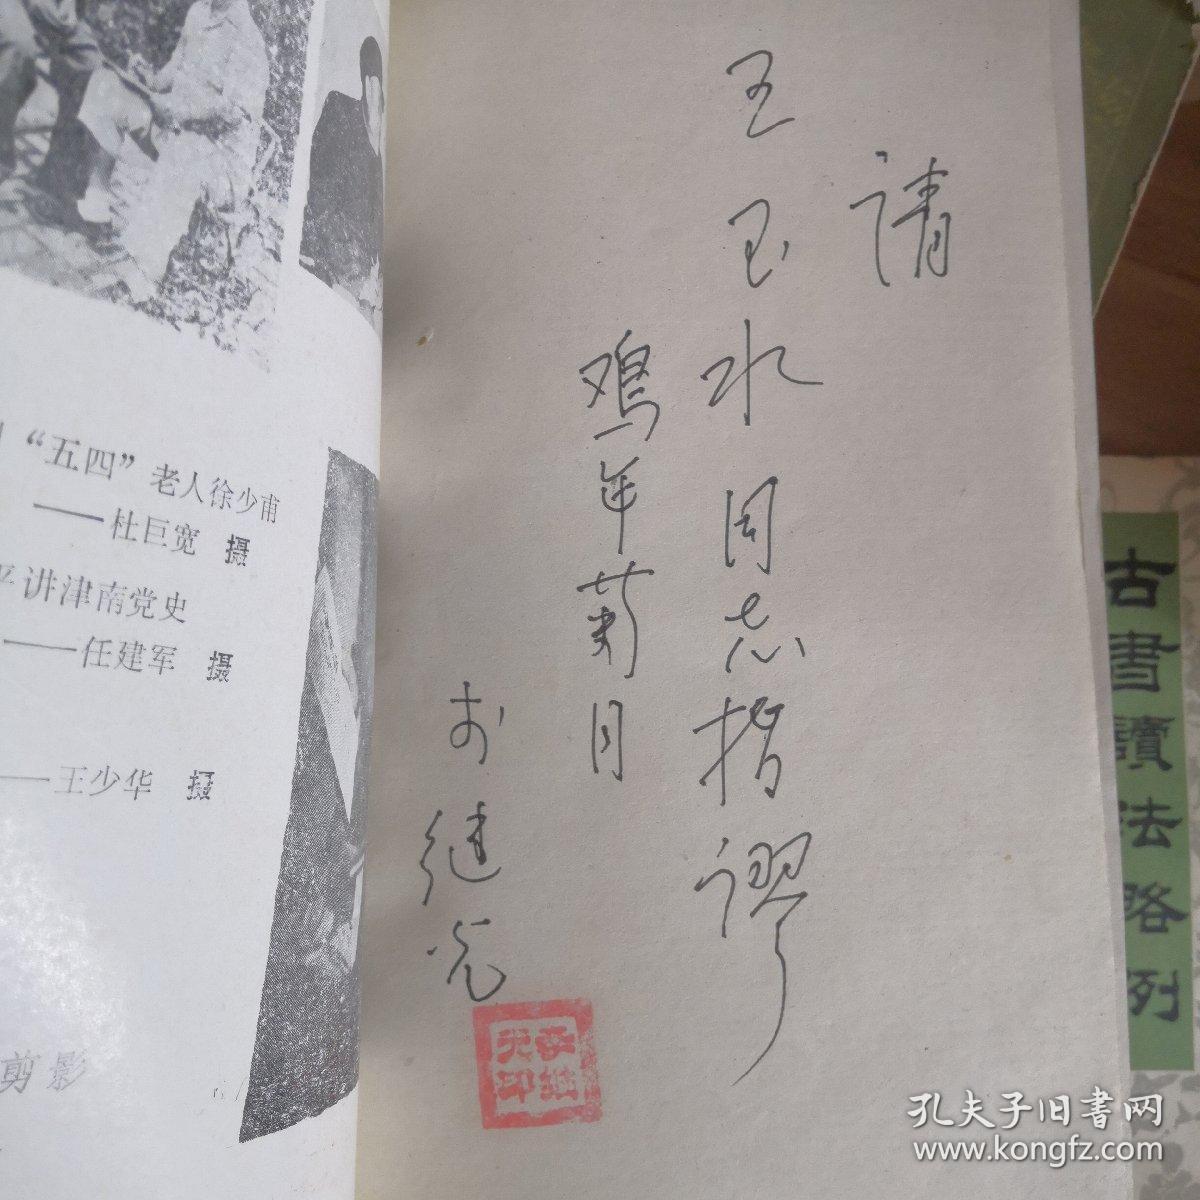 请
王玉水同志指谬
鸡年菊月
李继光
李继
光印
“五四”老人徐少甫
——杜巨宽 摄
平讲津南党史
——任建军 摄
——王少华 摄
剪影
古書讀法略例
孔夫子旧书网
www.kongfz.com